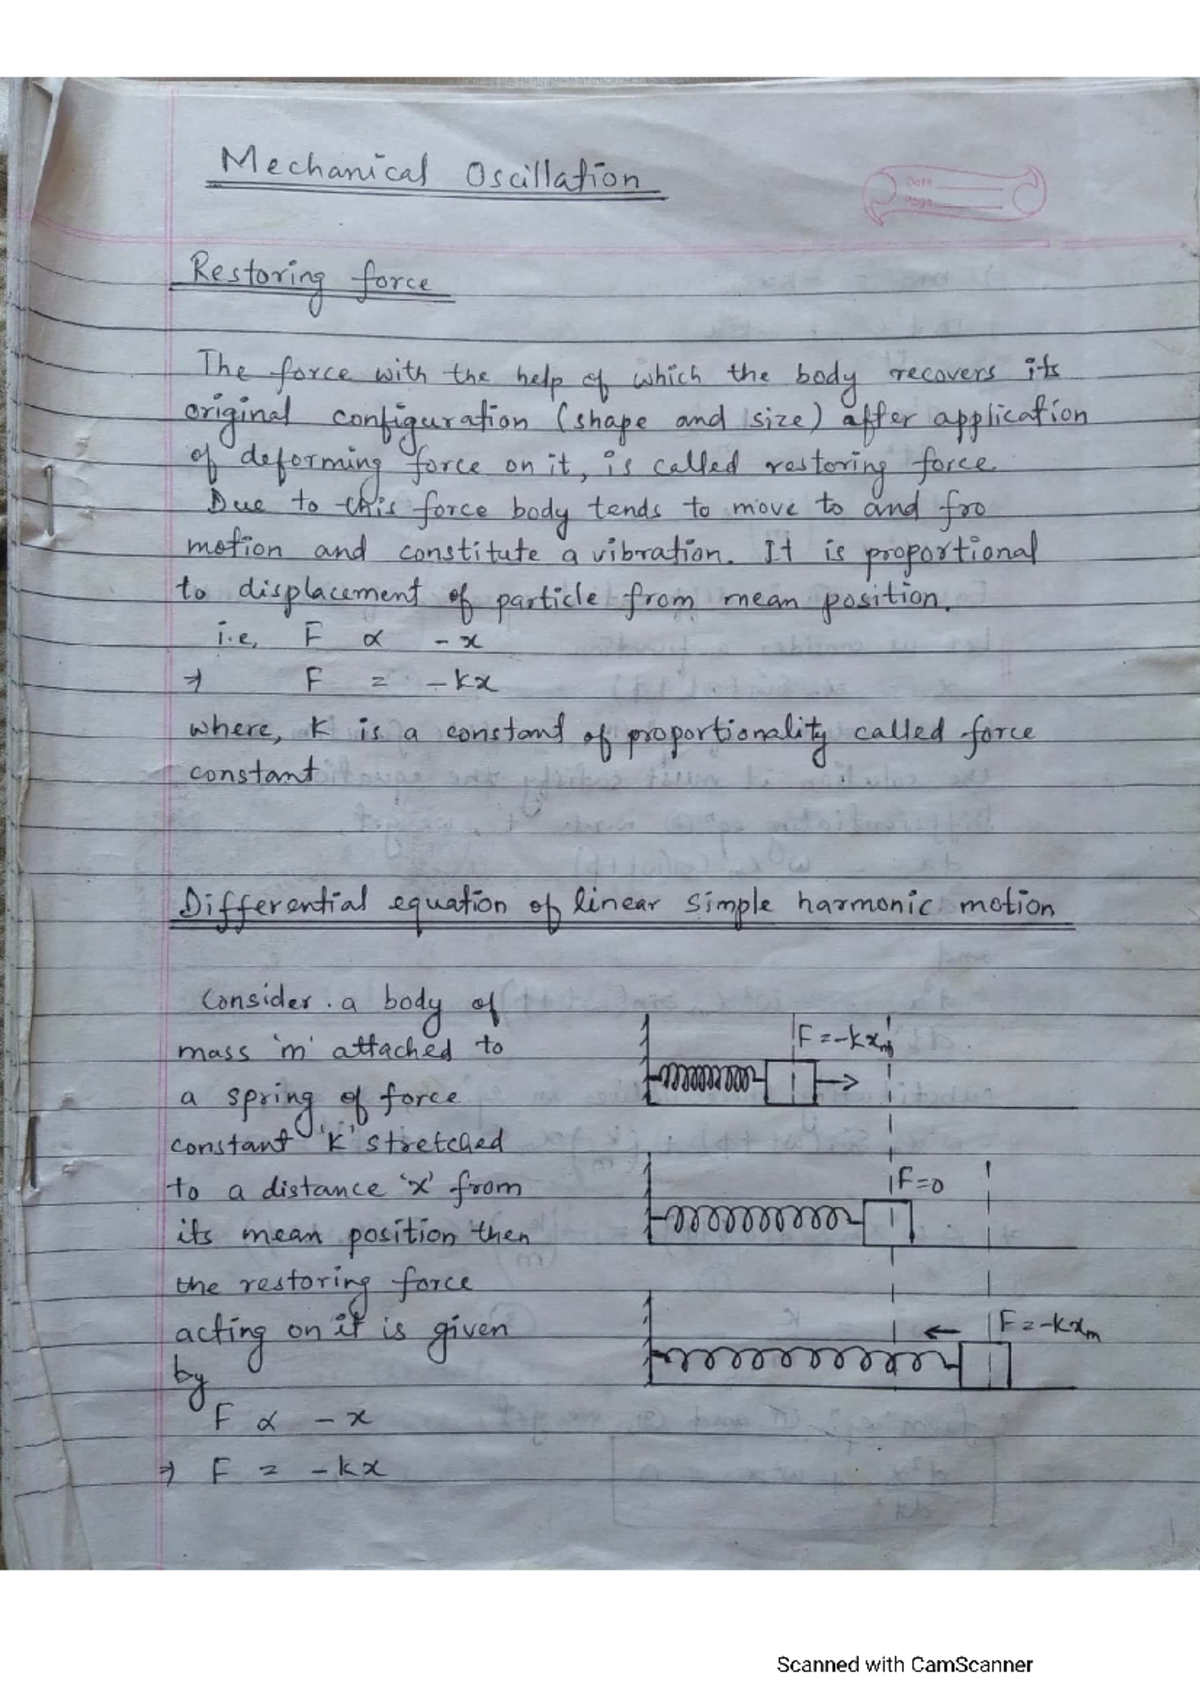 Mechanical Oscillation
Date
Page
Restoring force
The force with the help of which the body recovers its
original configuration (shape and size) after application
of deforming force on it, is called restoring force.
Due to this force body tends to move to and fro
motion and constitute a vibration. It is proportional
to displacement of particle from mean position.
i.e, F ∝ -x
⇒ F = -kx
where, K is a constant of proportionality called force
constant
Differential equation of linear simple harmonic motion
Consider a body of
mass 'm' attached to
a spring of force
constant 'K' stretched
to a distance 'x' from
its mean position then
the restoring force
acting on it is given
by
F ∝ -x
⇒ F = -kx
F = -kxm
F=0
F = -kxm
Scanned with CamScanner